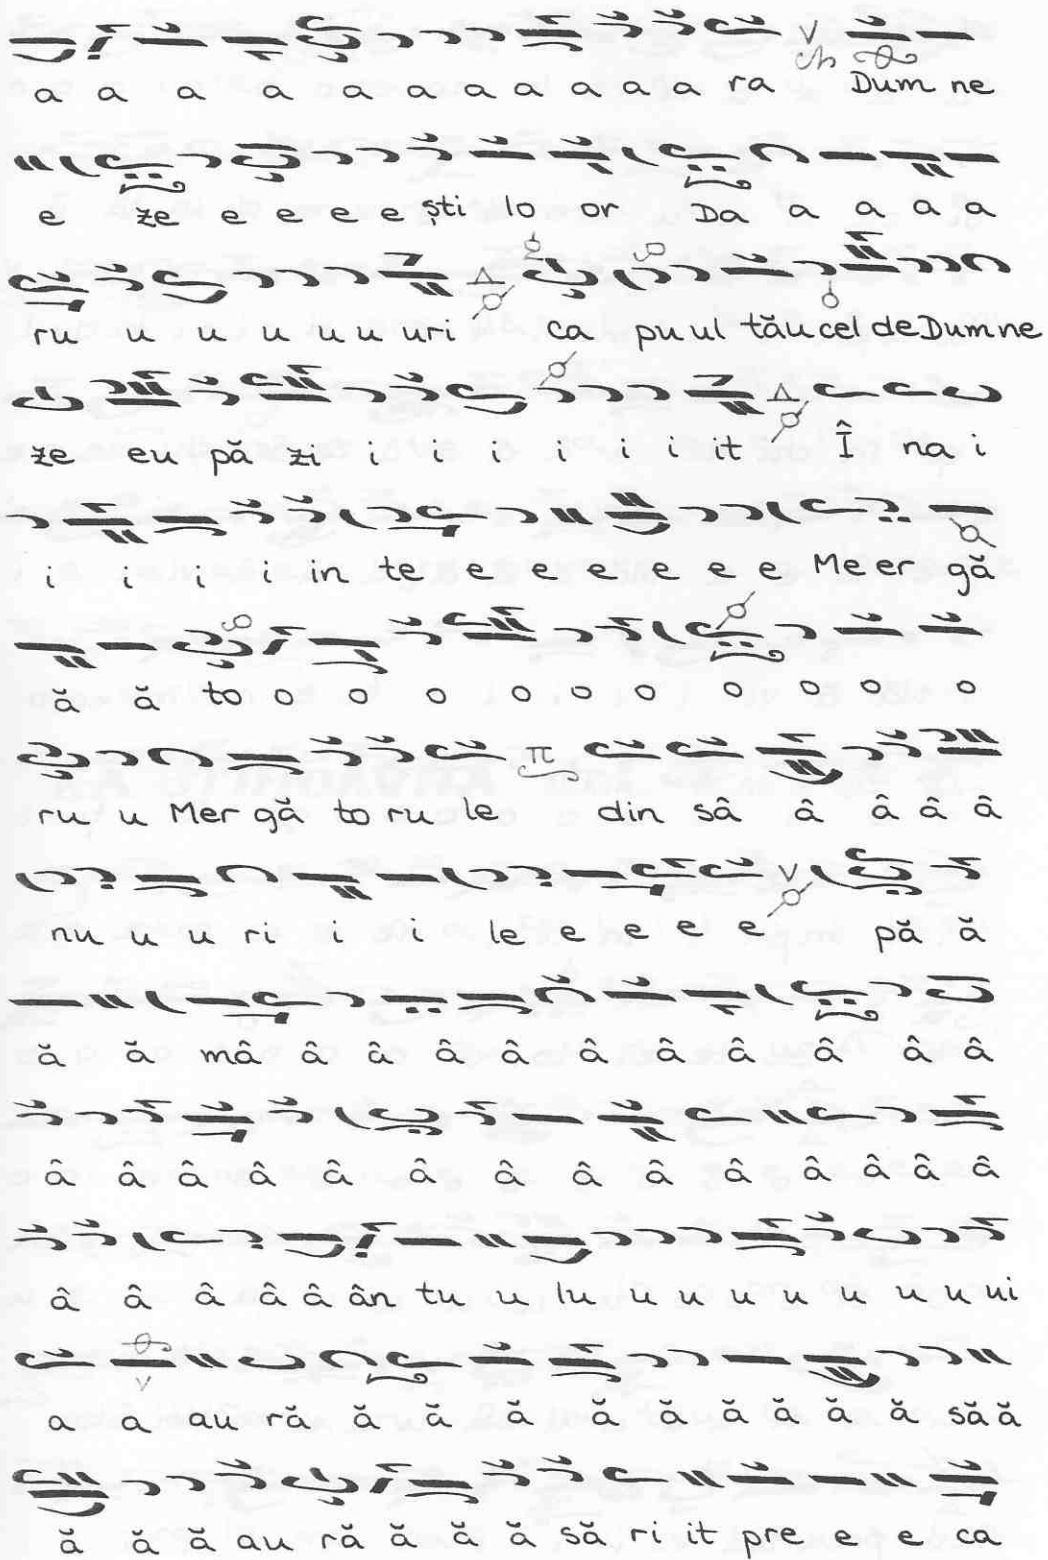 a a a a a a a a a a a ra Dum ne
e ze e e e e şti lo or Da a a a a
ru u u u u u uri ca pu ul tău cel de Dum ne
ze eu pă zi i i i i i i it Î na i
i i i i in te e e e e e e Me er gă
ă ă to o o o o o o o o o o
ru u Mer gă to ru le din sâ â â â â
nu u u ri i i le e e e e pă ă
ă ă mâ â â â â â â â â â â
â â â â â â â â â â â â â â
â â â â â ân tu u lu u u u u u u u ui
a a au ră ă ă ă ă ă ă ă ă ă să ă
ă ă ă au ră ă ă ă să ri it pre e e ca